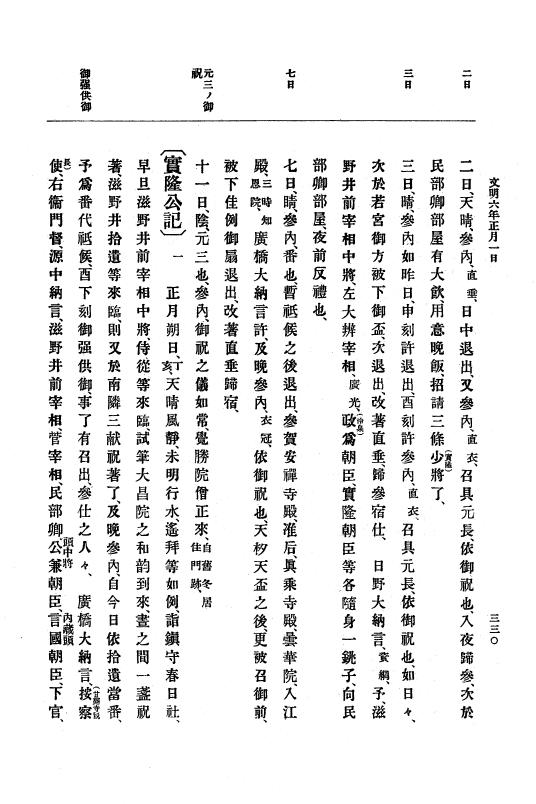 文明六年正月一日
三三〇
二日
三日
七日
元三ノ御祝
御强供御
二日、天晴、參內、直垂、日中退出、又參內、直衣、召具元長依御祝也、入夜歸參、次於
民部卿部屋有大飮用意晚飯、招請三條少將了、(實隆)
三日、晴、參內如昨日、申刻許退出、酉刻許參內、直衣、召具元長依御祝也、如日々、
次於若宮御方被下御盃、次退出、改著直垂、歸參宿仕、日野大納言、資綱、予、滋
野井前宰相中將、左大辨宰相、廣光、政爲朝臣、(冷泉)實隆朝臣等各隨身一銚子、向民
部卿部屋、夜前反禮也、
七日、晴、參內、番也、暫祗候之後退出、參賀安禪寺殿、准后、眞乘寺殿、曇華院、入江
殿、三時知恩院、廣橋大納言許、及晚參內、衣冠、依御祝也、天杪天盃之後、更被召御前、
被下佳例御扇退出、改著直垂歸宿、
十一日、陰、元三也、參內、御祝之儀如常、覺勝院僧正來、自舊冬居住門跡、
〔實隆公記〕一 正月朔日、丁亥、天晴風靜、未明行水、遙拜等如例、詣鎭守春日社、
早旦滋野井前宰相中將、侍從等來臨、試筆大昌院之和韵到來、晝之間一盞祝
著、滋野井拾遺等來臨、則又於南隣三献祝著了、及晚參內、自今日依拾遺當番、
予爲番代祗候、酉下刻御强供御、事了有召出、參仕之人々、廣橋大納言、按察(甘露寺親長)
使、右衞門督、源中納言、滋野井前宰相、菅宰相、民部卿、公兼朝臣、頭中將言國朝臣、內藏頭下官、